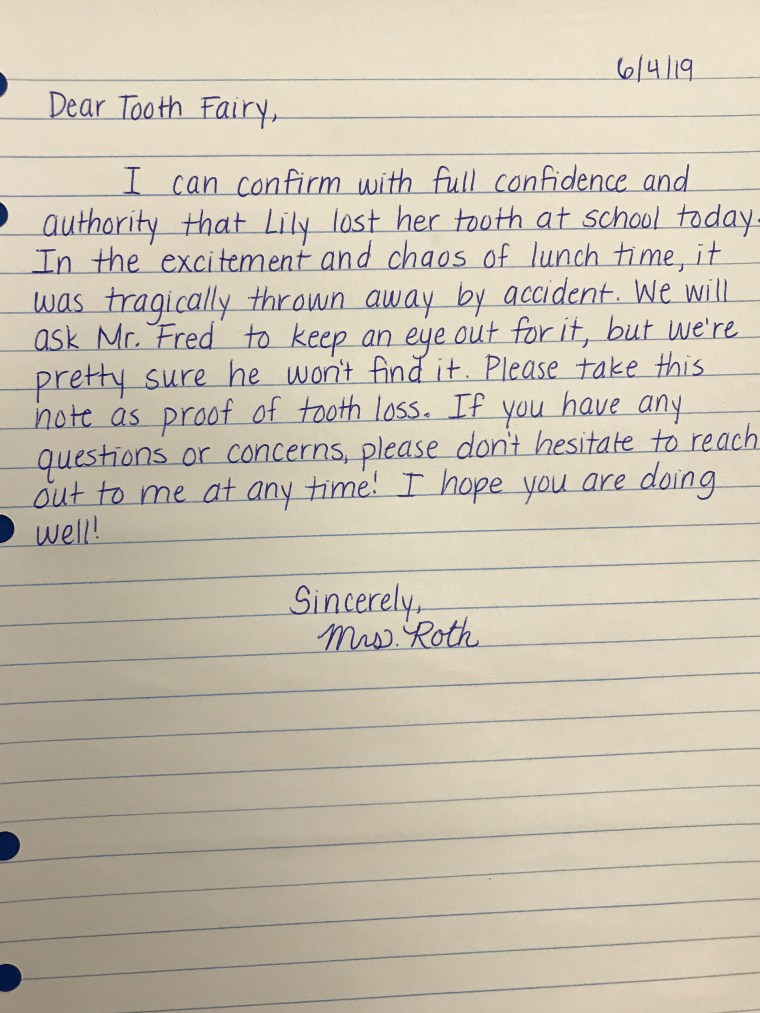 6/4/19
Dear Tooth Fairy,
I can confirm with full confidence and
authority that Lily lost her tooth at school today.
In the excitement and chaos of lunch time, it
was tragically thrown away by accident. We will
ask Mr. Fred to keep an eye out for it, but we're
pretty sure he won't find it. Please take this
note as proof of tooth loss. If you have any
questions or concerns, please don't hesitate to reach
out to me at any time! I hope you are doing
well!
Sincerely,
Mrs. Roth